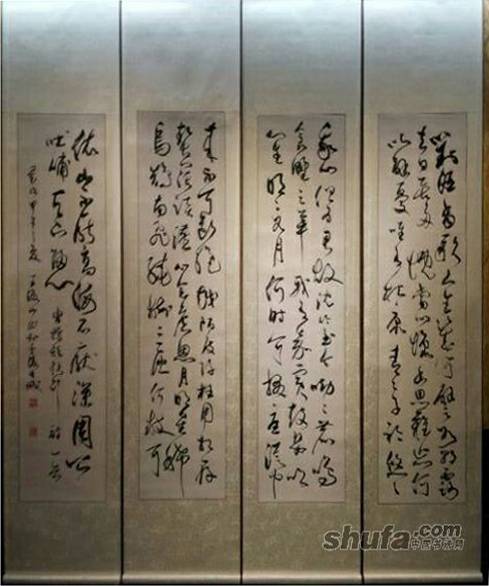 對酒當歌人生幾何譬如朝露
去日苦多慨當以慷憂思難忘何
以解憂唯有杜康青青子衿悠〻
我心但為君故沈吟至今呦〻鹿鳴
食野之苹我有嘉賓鼓瑟吹
笙明〻如月何時可掇憂從中
來不可斷絕越陌度阡枉用相存
契闊談讌心念舊恩月明星稀
烏鵲南飛繞樹三匝何枝可
依山不厭高海不厭深周公
吐哺天下歸心 曹操短歌行 詩一首
歲次甲午之夏
shufa.com
中国书法网